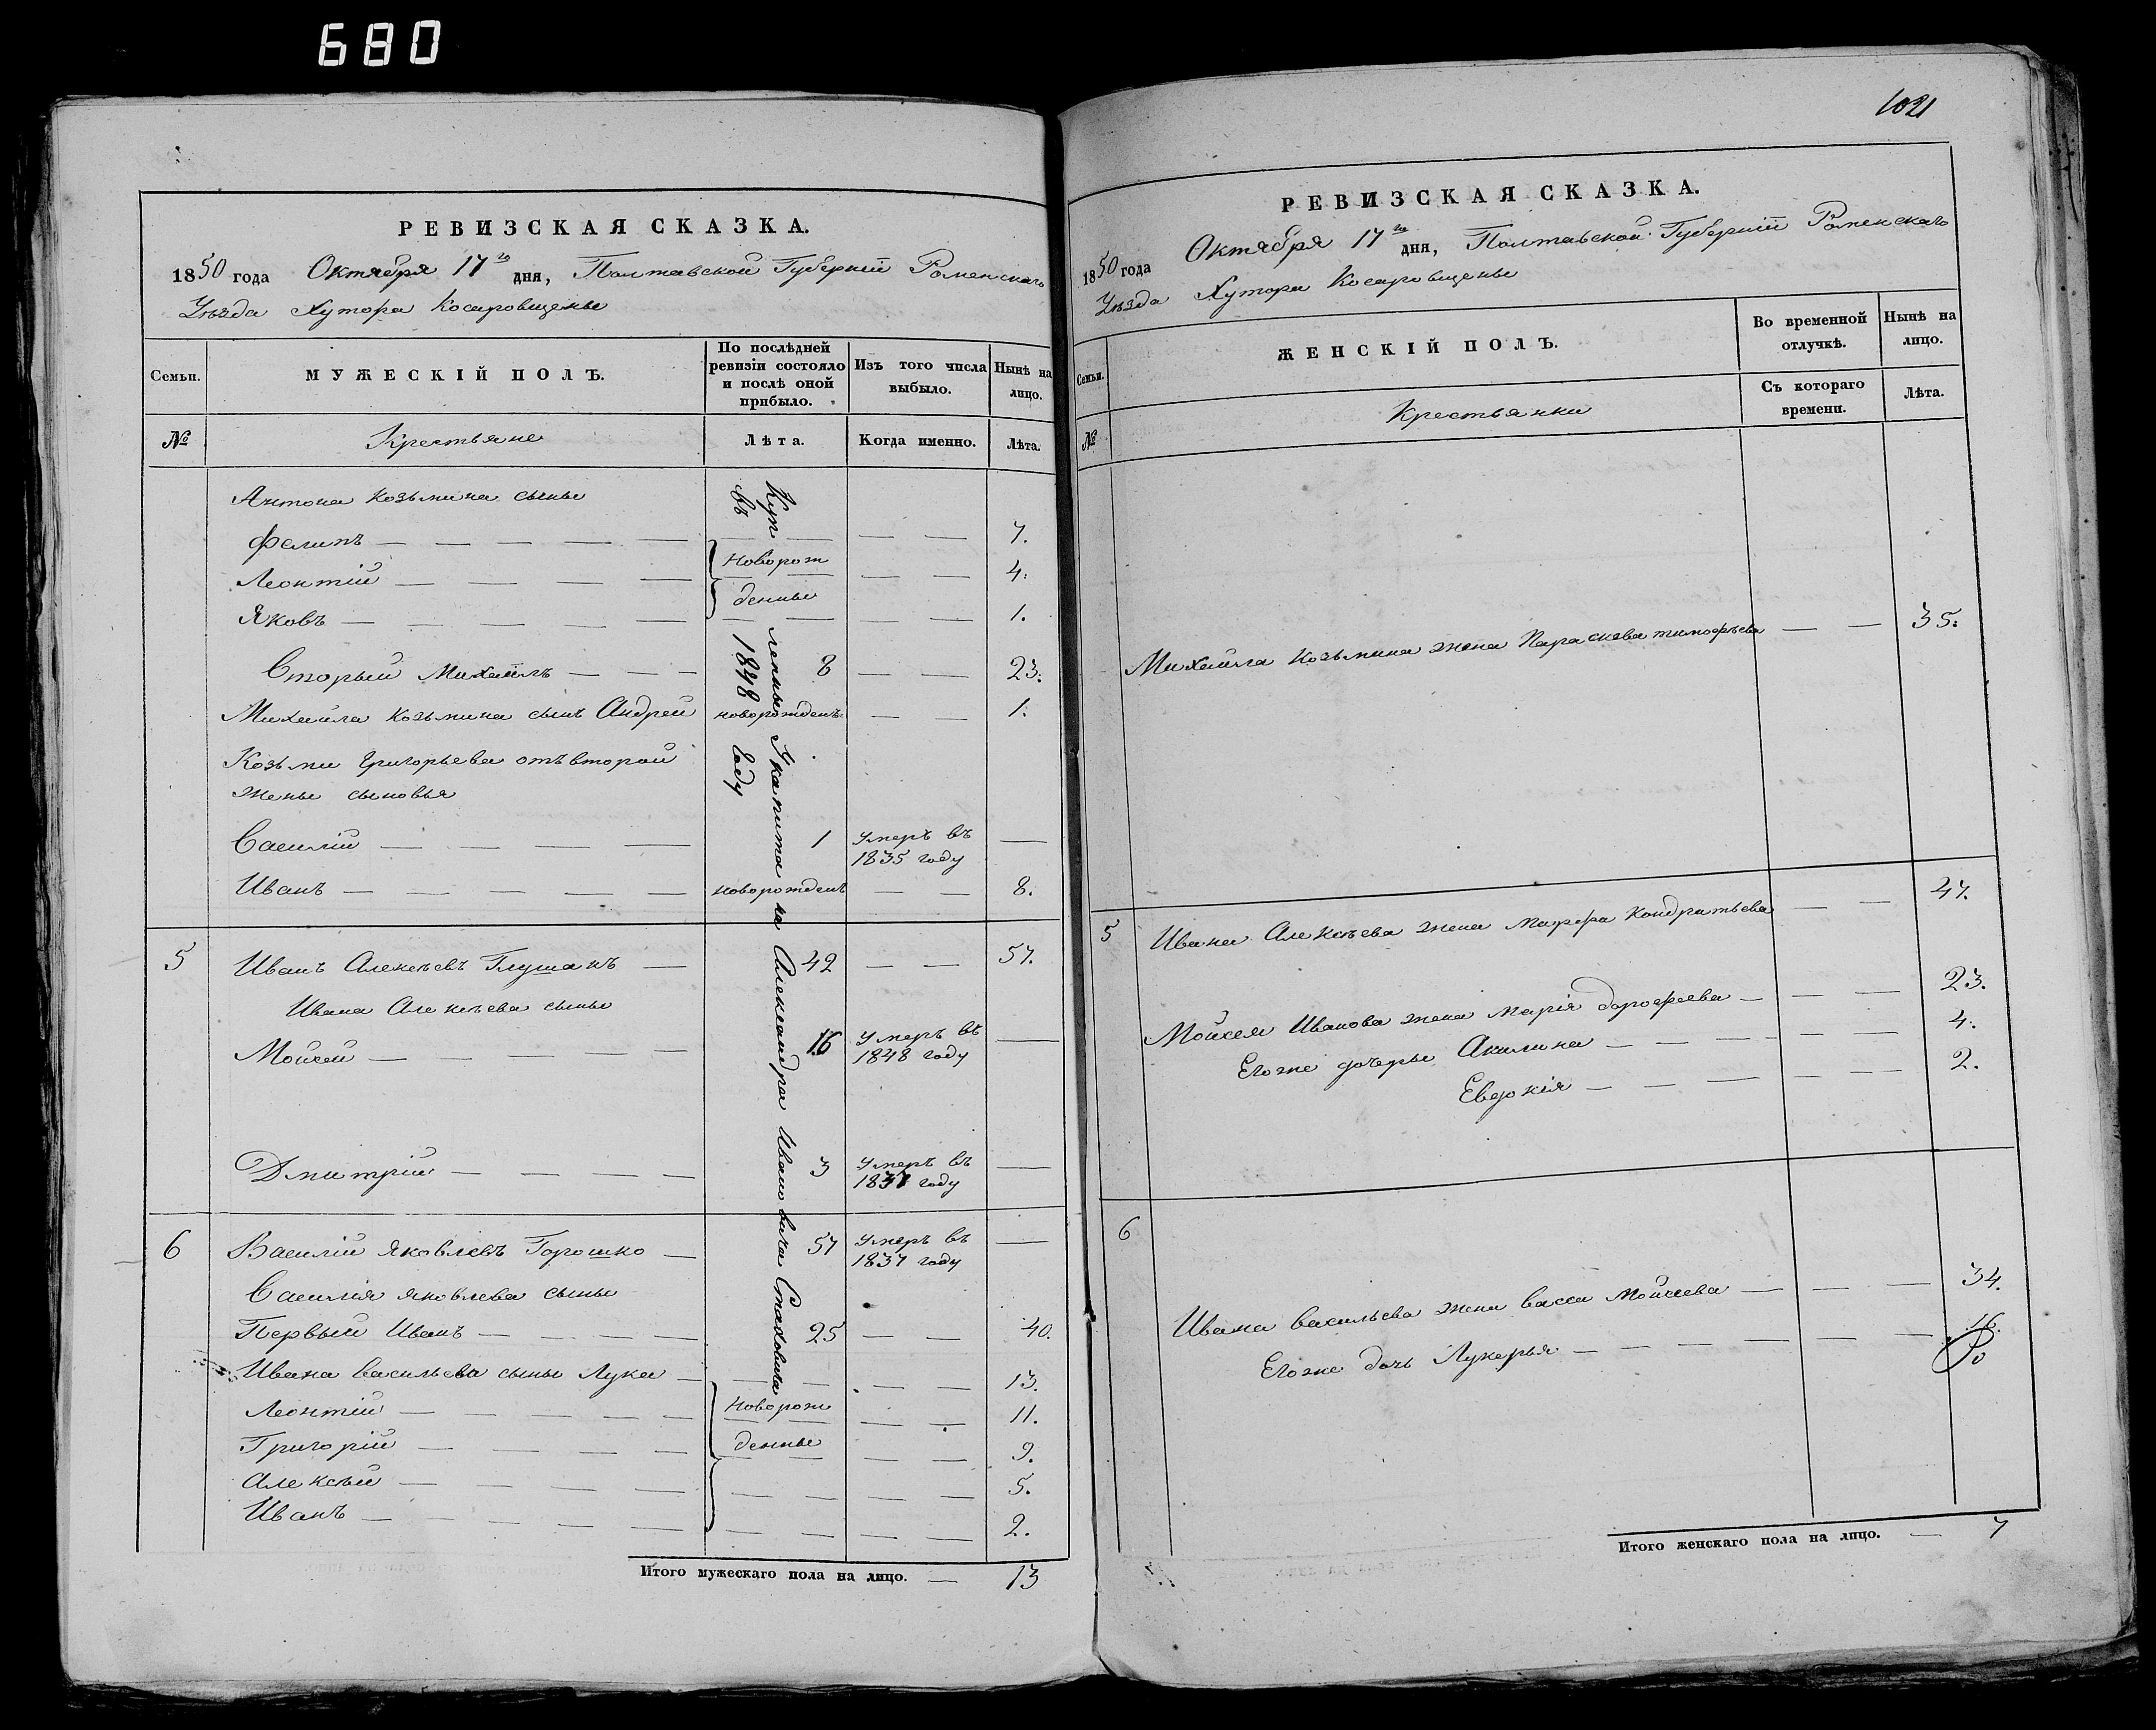 680
РЕВИЗСКАЯ СКАЗКА.
1850 года Октября 17го дня, Полтавской Губерніи Роменскаго
Уѣзда Хутора Косаровщены
Семьи.
МУЖЕСКІЙ ПОЛЪ.
По послѣдней ревизіи состояло и послѣ оной прибыло.
Изъ того числа выбыло.
Нынѣ на лицо.
№
Крестьяне
Лѣта.
Когда именно.
Лѣта.
Куп ленны У капитана Александра Ивановича Стаховича
въ 1848 году
Антона Козьмина сыны
Филипъ — — — — — — — 7.
Леонтій — — — — Новорож — — 4.
Яковъ — — — — — денные — — 1.
Вторый Михаилъ — — — 8 — — 23.
Михайла Козьмина сынъ Андрей новорожденъ — — 1.
Козьми Григорьева отъ второй
жены сыновья
Василій — — — — 1 Умеръ въ 1835 году —
Иванъ — — — — — новорожденъ — — 8.
5 Иванъ Алексѣевъ Глушакъ — 42 — — 57.
Ивана Алексѣева сыны
Мойсей — — — — 16 Умеръ въ 1848 году —
Дмитрій — — — — 3 Умеръ въ 1837 году —
6 Василій Яковлевъ Горошко — 57 Умеръ въ 1837 году —
Василія Яковлева сыны
Первый Иванъ — — — — 25 — — 40.
Ивана Васильева сыны Лука — — — — — 13.
Леонтій — — — — — Новорож — — 11.
Григорій — — — — денные — — 9.
Алексѣй — — — — — — — — — 5.
Иванъ — — — — — — — — — 2.
Итого мужескаго пола на лицо. — 13
1021
РЕВИЗСКАЯ СКАЗКА.
1850 года Октября 17го дня, Полтавской Губерніи Роменскаго
Уѣзда Хутора Косаровщены
Семьи.
ЖЕНСКІЙ ПОЛЪ.
Во временной отлучкѣ.
Нынѣ на лицо.
№
Крестьянки
Съ котораго времени.
Лѣта.
Михайла Козьмина жена Параскева Тимофѣева — — 35.
5 Ивана Алексѣева жена Марфа Кондратьева — — 47.
Мойсея Иванова жена Марія Дорофеева — — — 23.
Егоже дочеры Акилина — — — — — — 4.
Евдокія — — — — — — 2.
6
Ивана Васильева жена Васса Мойсеева — — — 34.
Егоже дочь Лукерья — — — — — — 16.
Итого женскаго пола на лицо. — 7